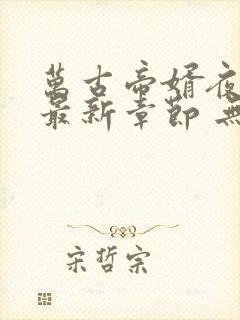 萬古帝婿夜
最新章節 無
宋哲宗